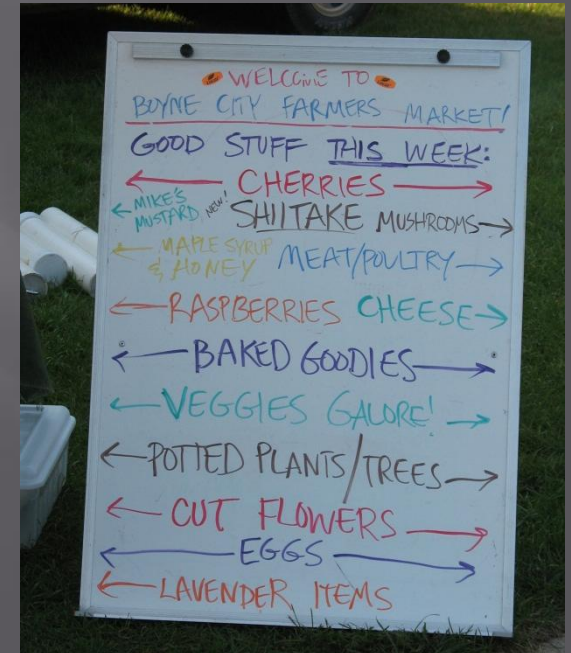 WELCOME TO
BOYNE CITY FARMERS MARKET!
GOOD STUFF THIS WEEK:
CHERRIES
MIKE'S MUSTARD NEW! SHIITAKE MUSHROOMS
MAPLE SYRUP & HONEY MEAT/POULTRY
RASPBERRIES CHEESE
BAKED GOODIES
VEGGIES GALORE!
POTTED PLANTS/TREES
CUT FLOWERS
EGGS
LAVENDER ITEMS